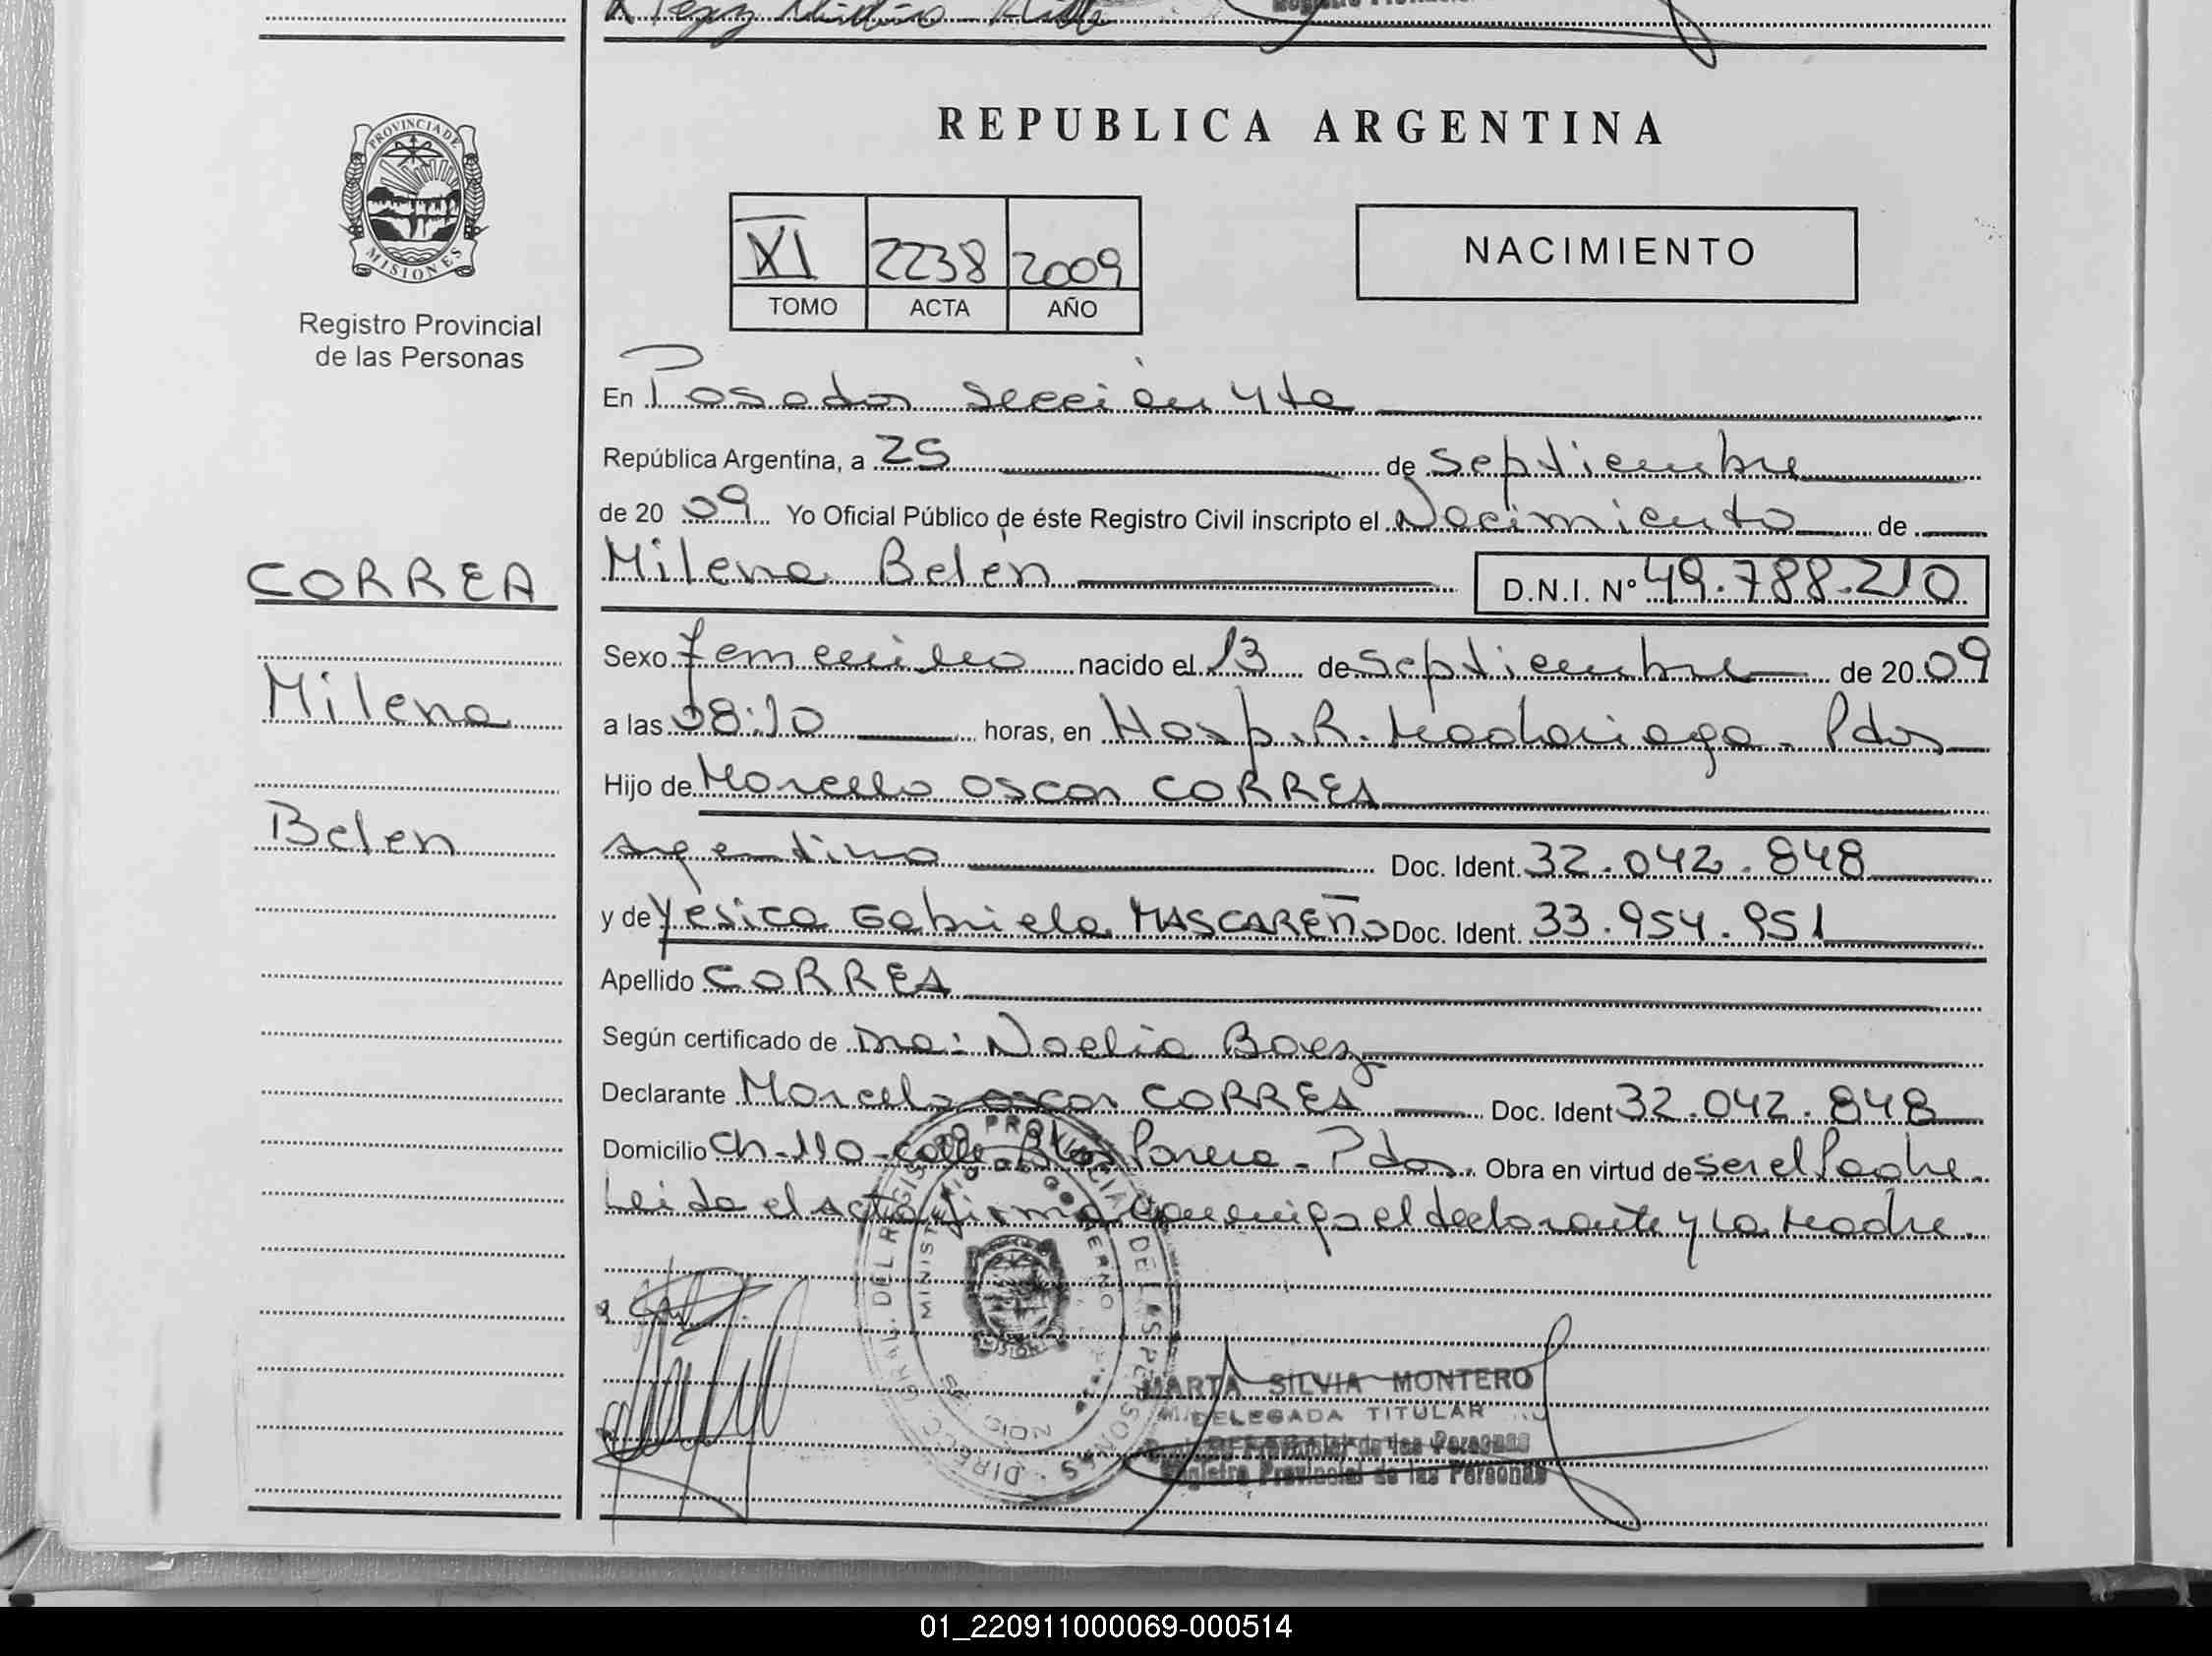 REPUBLICA ARGENTINA
PROVINCIA DE
MISIONES
Registro Provincial
de las Personas
XI 2238 2009
TOMO ACTA AÑO
NACIMIENTO
En Posadas sección 4ta
República Argentina, a 25 de septiembre
de 2009 Yo Oficial Público de éste Registro Civil inscripto el Nacimiento de
CORREA
Milena Belén D.N.I. Nº 49.788.210
Sexo femenino nacido el 13 de septiembre de 2009
Milena
a las 08:10 horas, en Hosp. R. Madariaga - Pdas
Hijo de Marcelo Oscar CORREA
Belen
Argentino Doc. Ident. 32.042.848
y de Yésica Gabriela MASCAREÑO Doc. Ident. 33.954.951
Apellido CORREA
Según certificado de Dra: Noelia Baez
Declarante Marcelo Oscar CORREA Doc. Ident 32.042.848
Domicilio Ch-110-calle Blas Parera - Pdas. Obra en virtud de ser el Padre.
Leida el acta firma conmigo el declarante y la Madre.
DIRECC. GRAL. DEL REGISTRO PROVINCIAL DE LAS PERSONAS
MINISTERIO DE GOBIERNO
MISIONES
MARTA SILVIA MONTERO
DELEGADA TITULAR
Registro Provincial de las Personas
Registro Provincial de las Personas
01_220911000069-000514